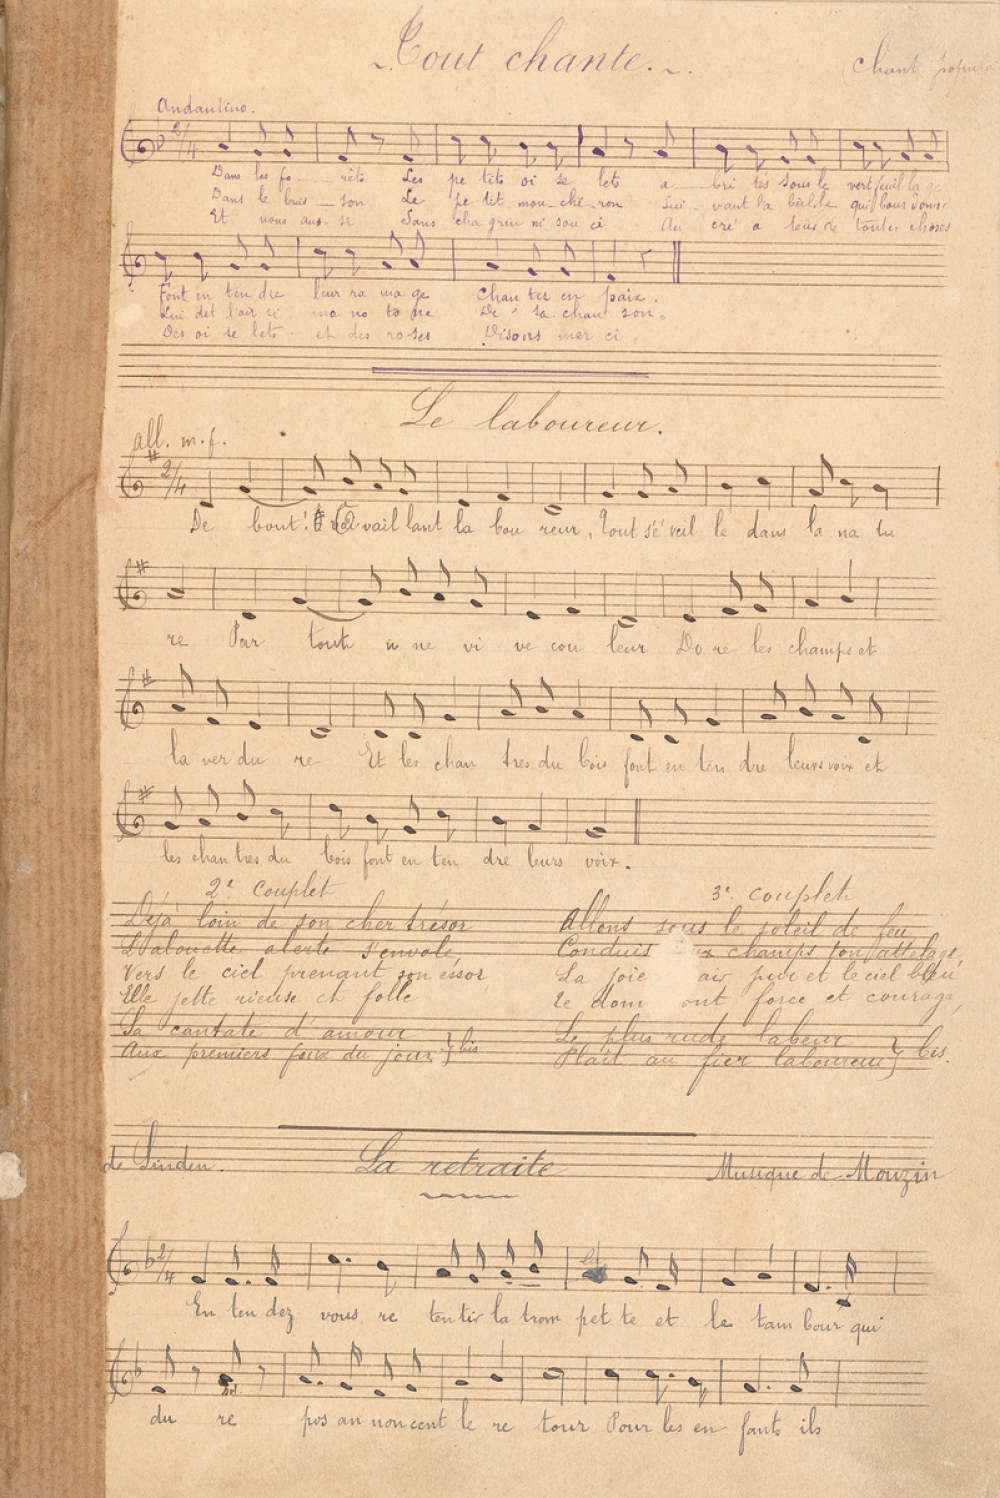 ~ Tout chante. ~
Chant popula
Andantino.
2/4
Dans les fo — rêts Les pe tits oi se lets a — bri tés sous le vert feuil la ge
Dans le buis — son Le pe tit mou-che-ron Sui - vant l'a beille qui bour
Et nous aus-si Sans cha grin ni sou ci Au cré a teur de toutes choses
Font en ten dre leur ra ma ge Chan ter en paix.
Lui dit l'air si mo no to ne De sa chan son.
Des oi se lets et des ro ses Disons mer ci
Le laboureur.
All. m.f.
2/4
De bout! vail lant la bou reur, Tout s'é veil le dans la na tu
re Par tout u ne vi ve cou leur Do re les champs et
la ver du re Et les chan tres du bois font en ten dre leurs voix et
les chan tres du bois font en ten dre leurs voix.
2e couplet
Déjà loin de son cher trésor
L'alouette alerte s'envole,
Vers le ciel prenant son essor,
Elle jette rieuse et folle
Sa cantate d'amour
Aux premiers feux du jour } bis
3e couplet
Allons sous le soleil de feu
Conduis ux champs ton attelage,
La joie air pur et le ciel bleu
Te donn ont force et courage,
Le plus rude labeur
Plait au fier laboureur } bis.
de Linden.
La retraite
Musique de Mouzin
2/4
En ten dez vous re ten tir la trom pet te et le tam bour qui
du re pos an non cent le re tour Pour les en fants ils